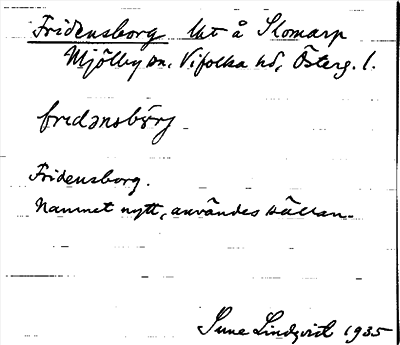 Fridensborg lht å Slomarp
Mjölby sn, Vifolka hd, Österg. l.
fridənsbȯrj
Fridensborg.
Namnet nytt, användes sällan.
Sune Lindqvist 1935